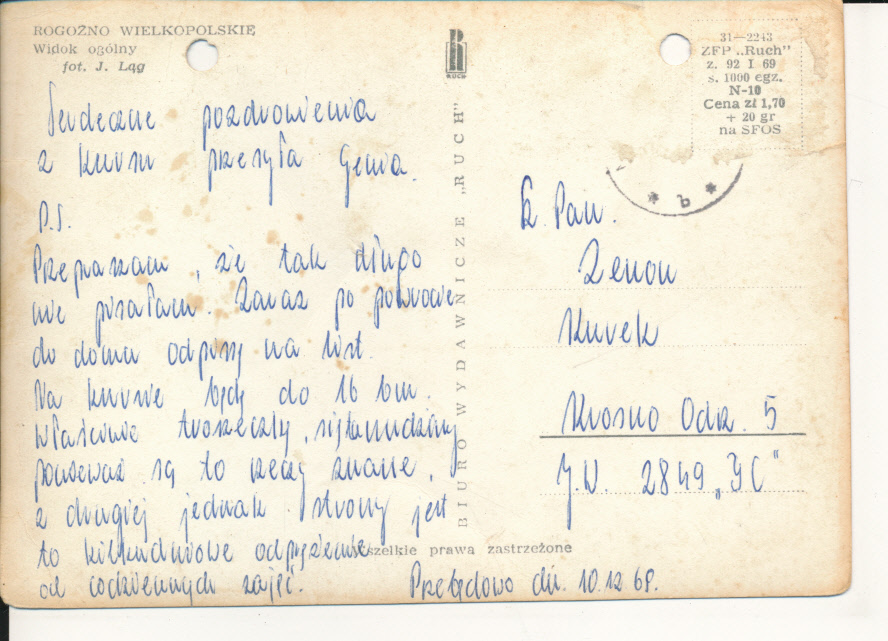 ROGOŹNO WIELKOPOLSKIE
Widok ogólny
fot. J. Łąg
RUCH
31—2243
ZFP „Ruch"
z. 92 I 69
s. 1000 egz.
N-10
Cena zł 1,70
+ 20 gr
na SFOS
Serdeczne pozdrowienia
z kursu przesyła Genia.
P.S.
Przepraszam, że tak długo
nie pisałam. Zaraz po powrocie
do domu odpiszę na list.
Na kursie będę do 16 bm.
Właściwie troszeczkę się tu nudzimy
ponieważ są to rzeczy znane,
z drugiej jednak strony jest
to kilkudniowe odprężenie
od codziennych zajęć.
Przebędowo dn. 10.12 69.
BIURO WYDAWNICZE „RUCH"
Wszelkie prawa zastrzeżone
* b *
Sz. Pan.
Zenon
Kurek
Krosno Odrz. 5
J.W. 2849 „JC"